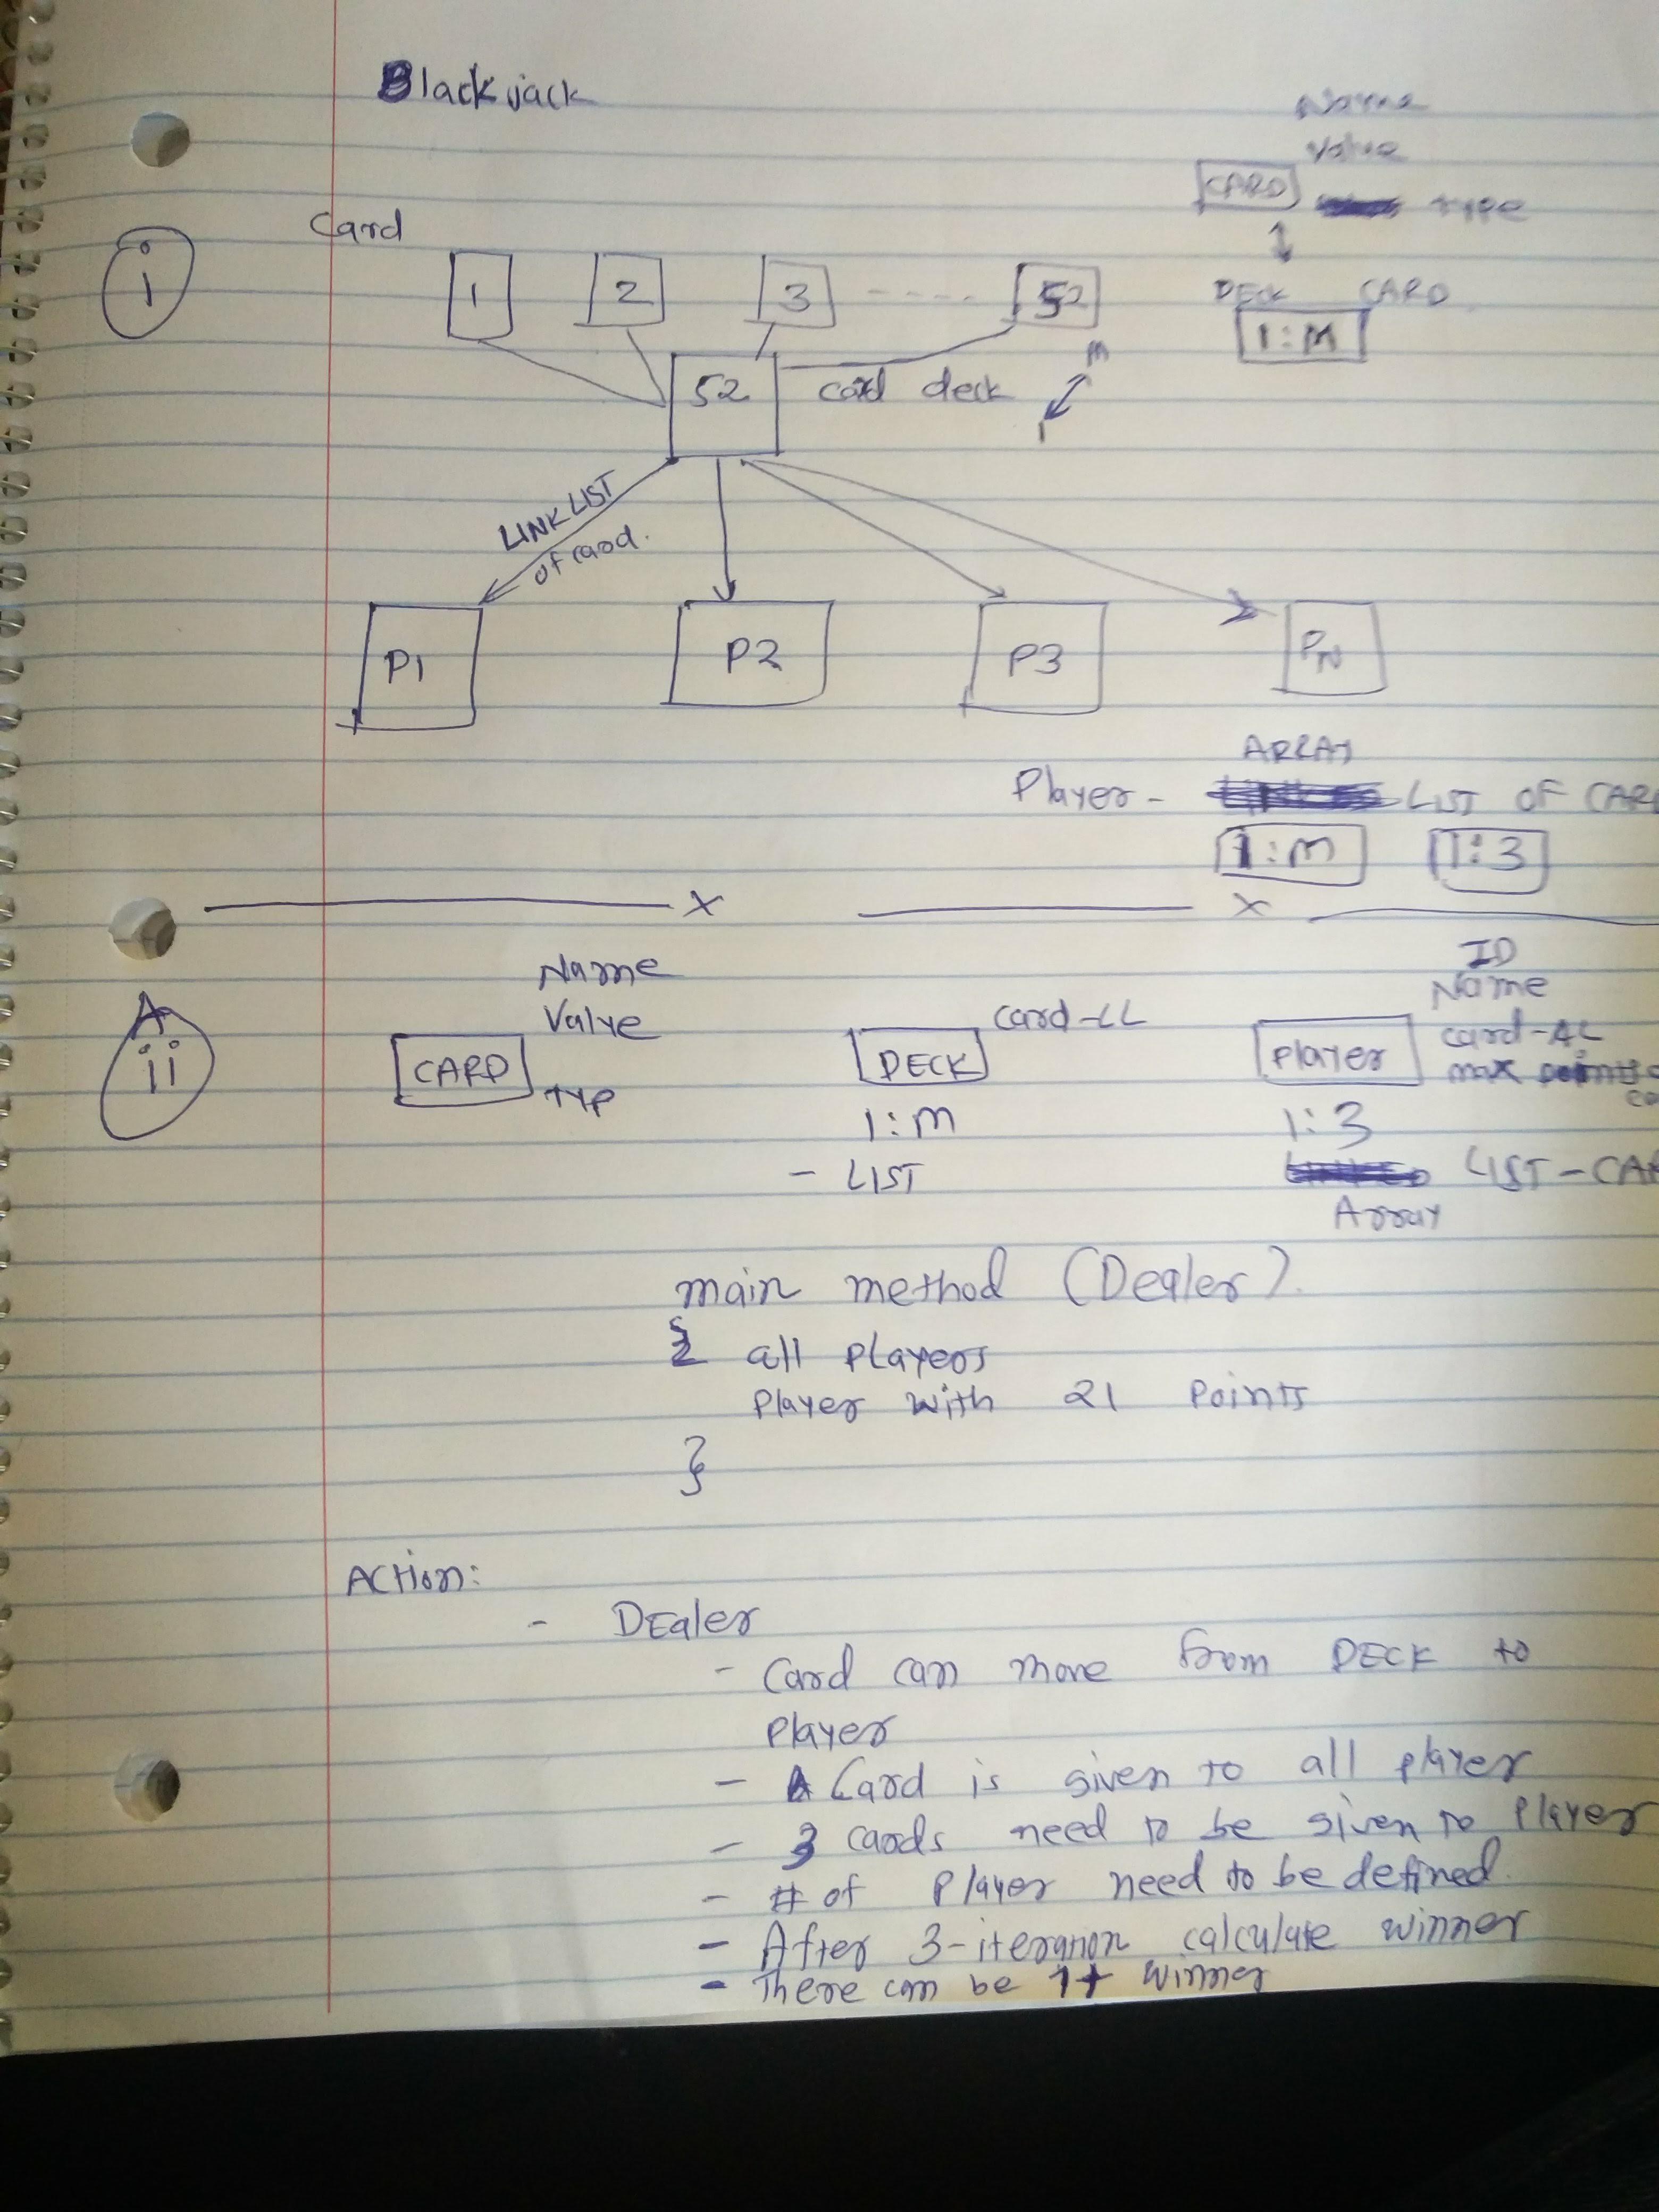 Blackjack
Name
Value
CARD type
Card
i
1 2 3 ---- 52
DECK CARD
1:M
52 card deck
M
1
LINK LIST
of card.
P1 P2 P3 PN
ARRAY
Player - LIST OF CARD
1:M 1:3
x x
ID
Name Name
Value card-LL card-AL
A
ii
CARD DECK Player max
TYP
1:M 1:3
- LIST LIST-CAR
Array
main method (Dealer).
{ all players
Player with 21 Points
}
Action:
- DEaler
- Card can move from DECK to
Player
- A Card is given to all player
- 3 cards need to be given to Player
- # of Player need to be defined.
- After 3-iteration calculate winner
- There can be 1+ winner